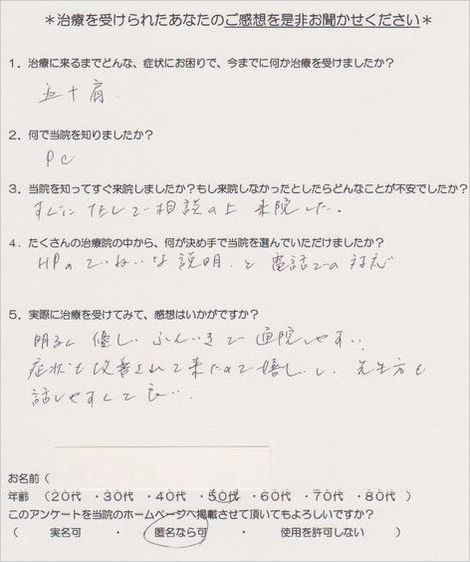 ＊治療を受けられたあなたのご感想を是非お聞かせください＊
1．治療に来るまでどんな、症状にお困りで、今までに何か治療を受けましたか？
五十肩．
2．何で当院を知りましたか？
PC
3．当院を知ってすぐ来院しましたか？もし来院しなかったとしたらどんなことが不安でしたか？
すぐに TELして相談の上 来院した。
4．たくさんの治療院の中から、何が決め手で当院を選んでいただけましたか？
HPのていねいな説明．と 電話での対応
5．実際に治療を受けてみて、感想はいかがですか？
明るく 優しい ふんいきで 通院しやすい．
症状も改善されて来たので嬉しいし、先生方も
話しやすくて良い．
お名前（
年齢 （20代 ・30代 ・40代 ・50代 ・60代 ・70代 ・80代 ）
このアンケートを当院のホームページへ掲載させて頂いてもよろしいですか？
（ 実名可 ・ 匿名なら可 ・ 使用を許可しない ）